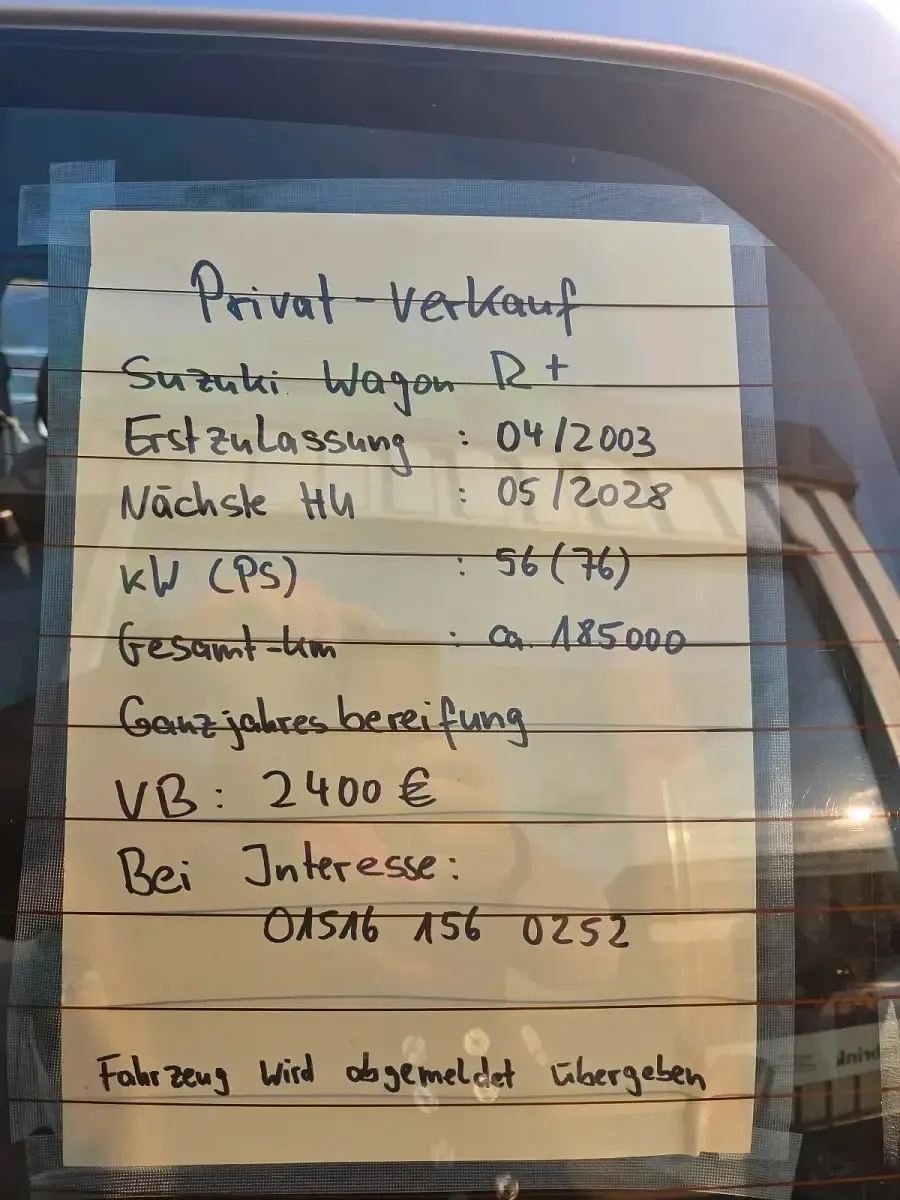 Privat-Verkauf
Suzuki Wagon R+
Erstzulassung : 04/2003
Nächste HU : 05/2028
kW (PS) : 56 (76)
Gesamt-km : ca. 185000
Ganzjahresbereifung
VB: 2400 €
Bei Interesse:
01516 156 0252
Fahrzeug wird abgemeldet übergeben